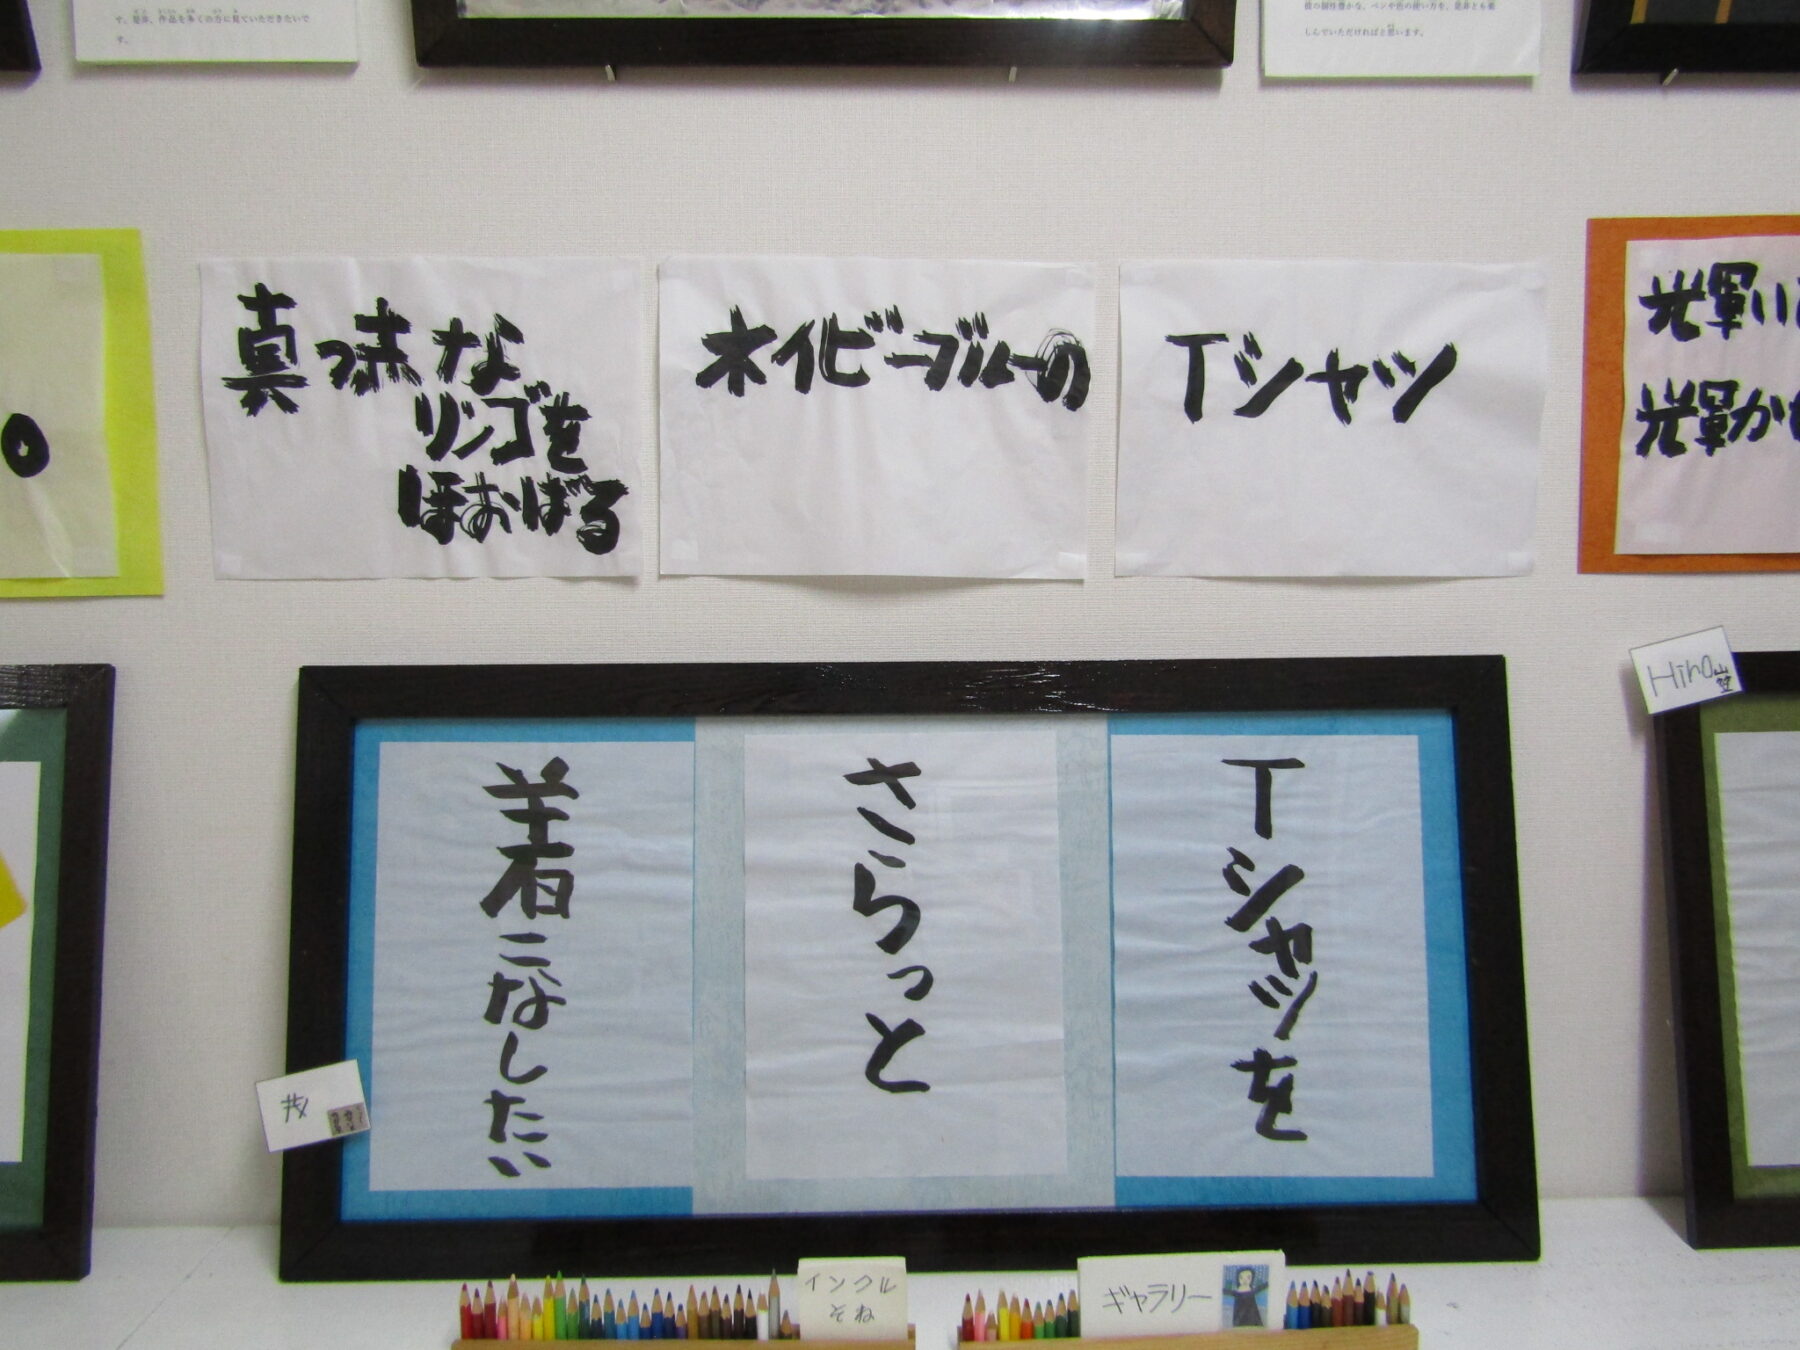 す。是非、作品を多くの方に見ていただきたいで
す。
彼の個性豊かな、ペンや色の使い方を、是非とも楽
しんでいただければと思います。
真っ赤な
リンゴを
ほおばる
ネイビーブルーの
Tシャツ
光輝い
光輝か
Hiro
Tシャツを
さらっと
着こなしたい
インクル
そね
ギャラリー